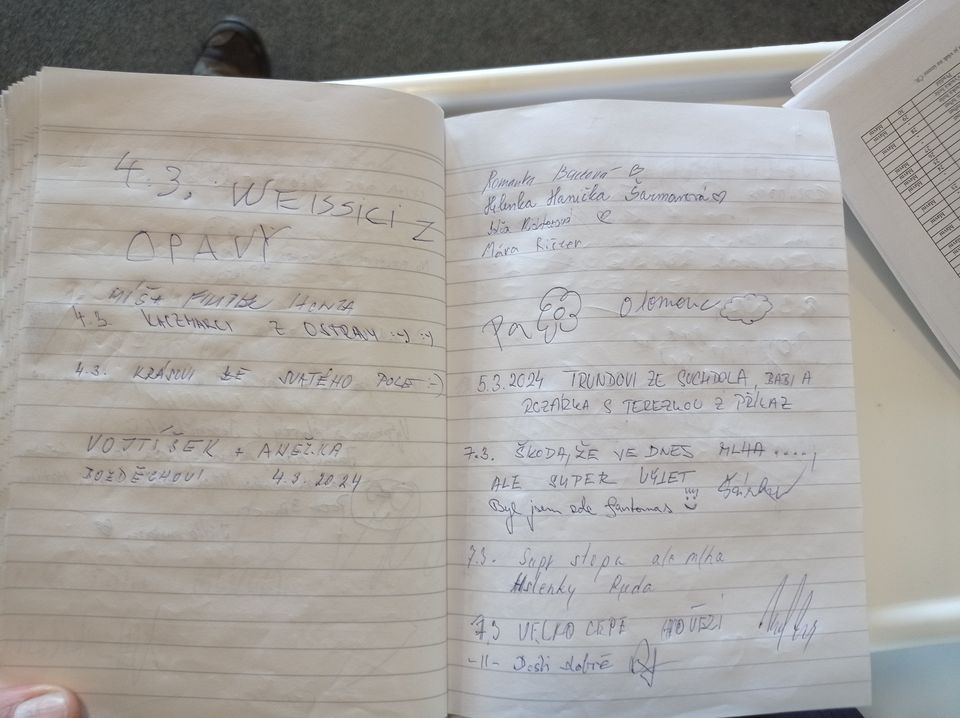 4.3. WEISSICI Z
OPAVY
MÍŠA HONZA
4.3. KACZMARCI Z OSTRAVY :-) :-)
4.3. KRÁSOVI ZE SVATÉHO POLE :-)
VOJTÍŠEK + ANEŽKA
4.3.2024
Romanka
Helenka Hanička Šarmanová
Mára Richter
Pa Olomouc
5.3.2024 TRUNDOVI ZE SUCHDOLA, BABI A
ROZÁRKA S TEREZKOU Z PŘÍKAZ
7.3. ŠKODA, ŽE JE DNES MLHA .....,
ALE SUPER VÝLET Šárka
Byl jsem zde fantomas
7.3. Supr stopa ale mlha
Hslenky Ruda
7.3 VELKO CEPE HOVĚZÍ
-11- Dosti dobré